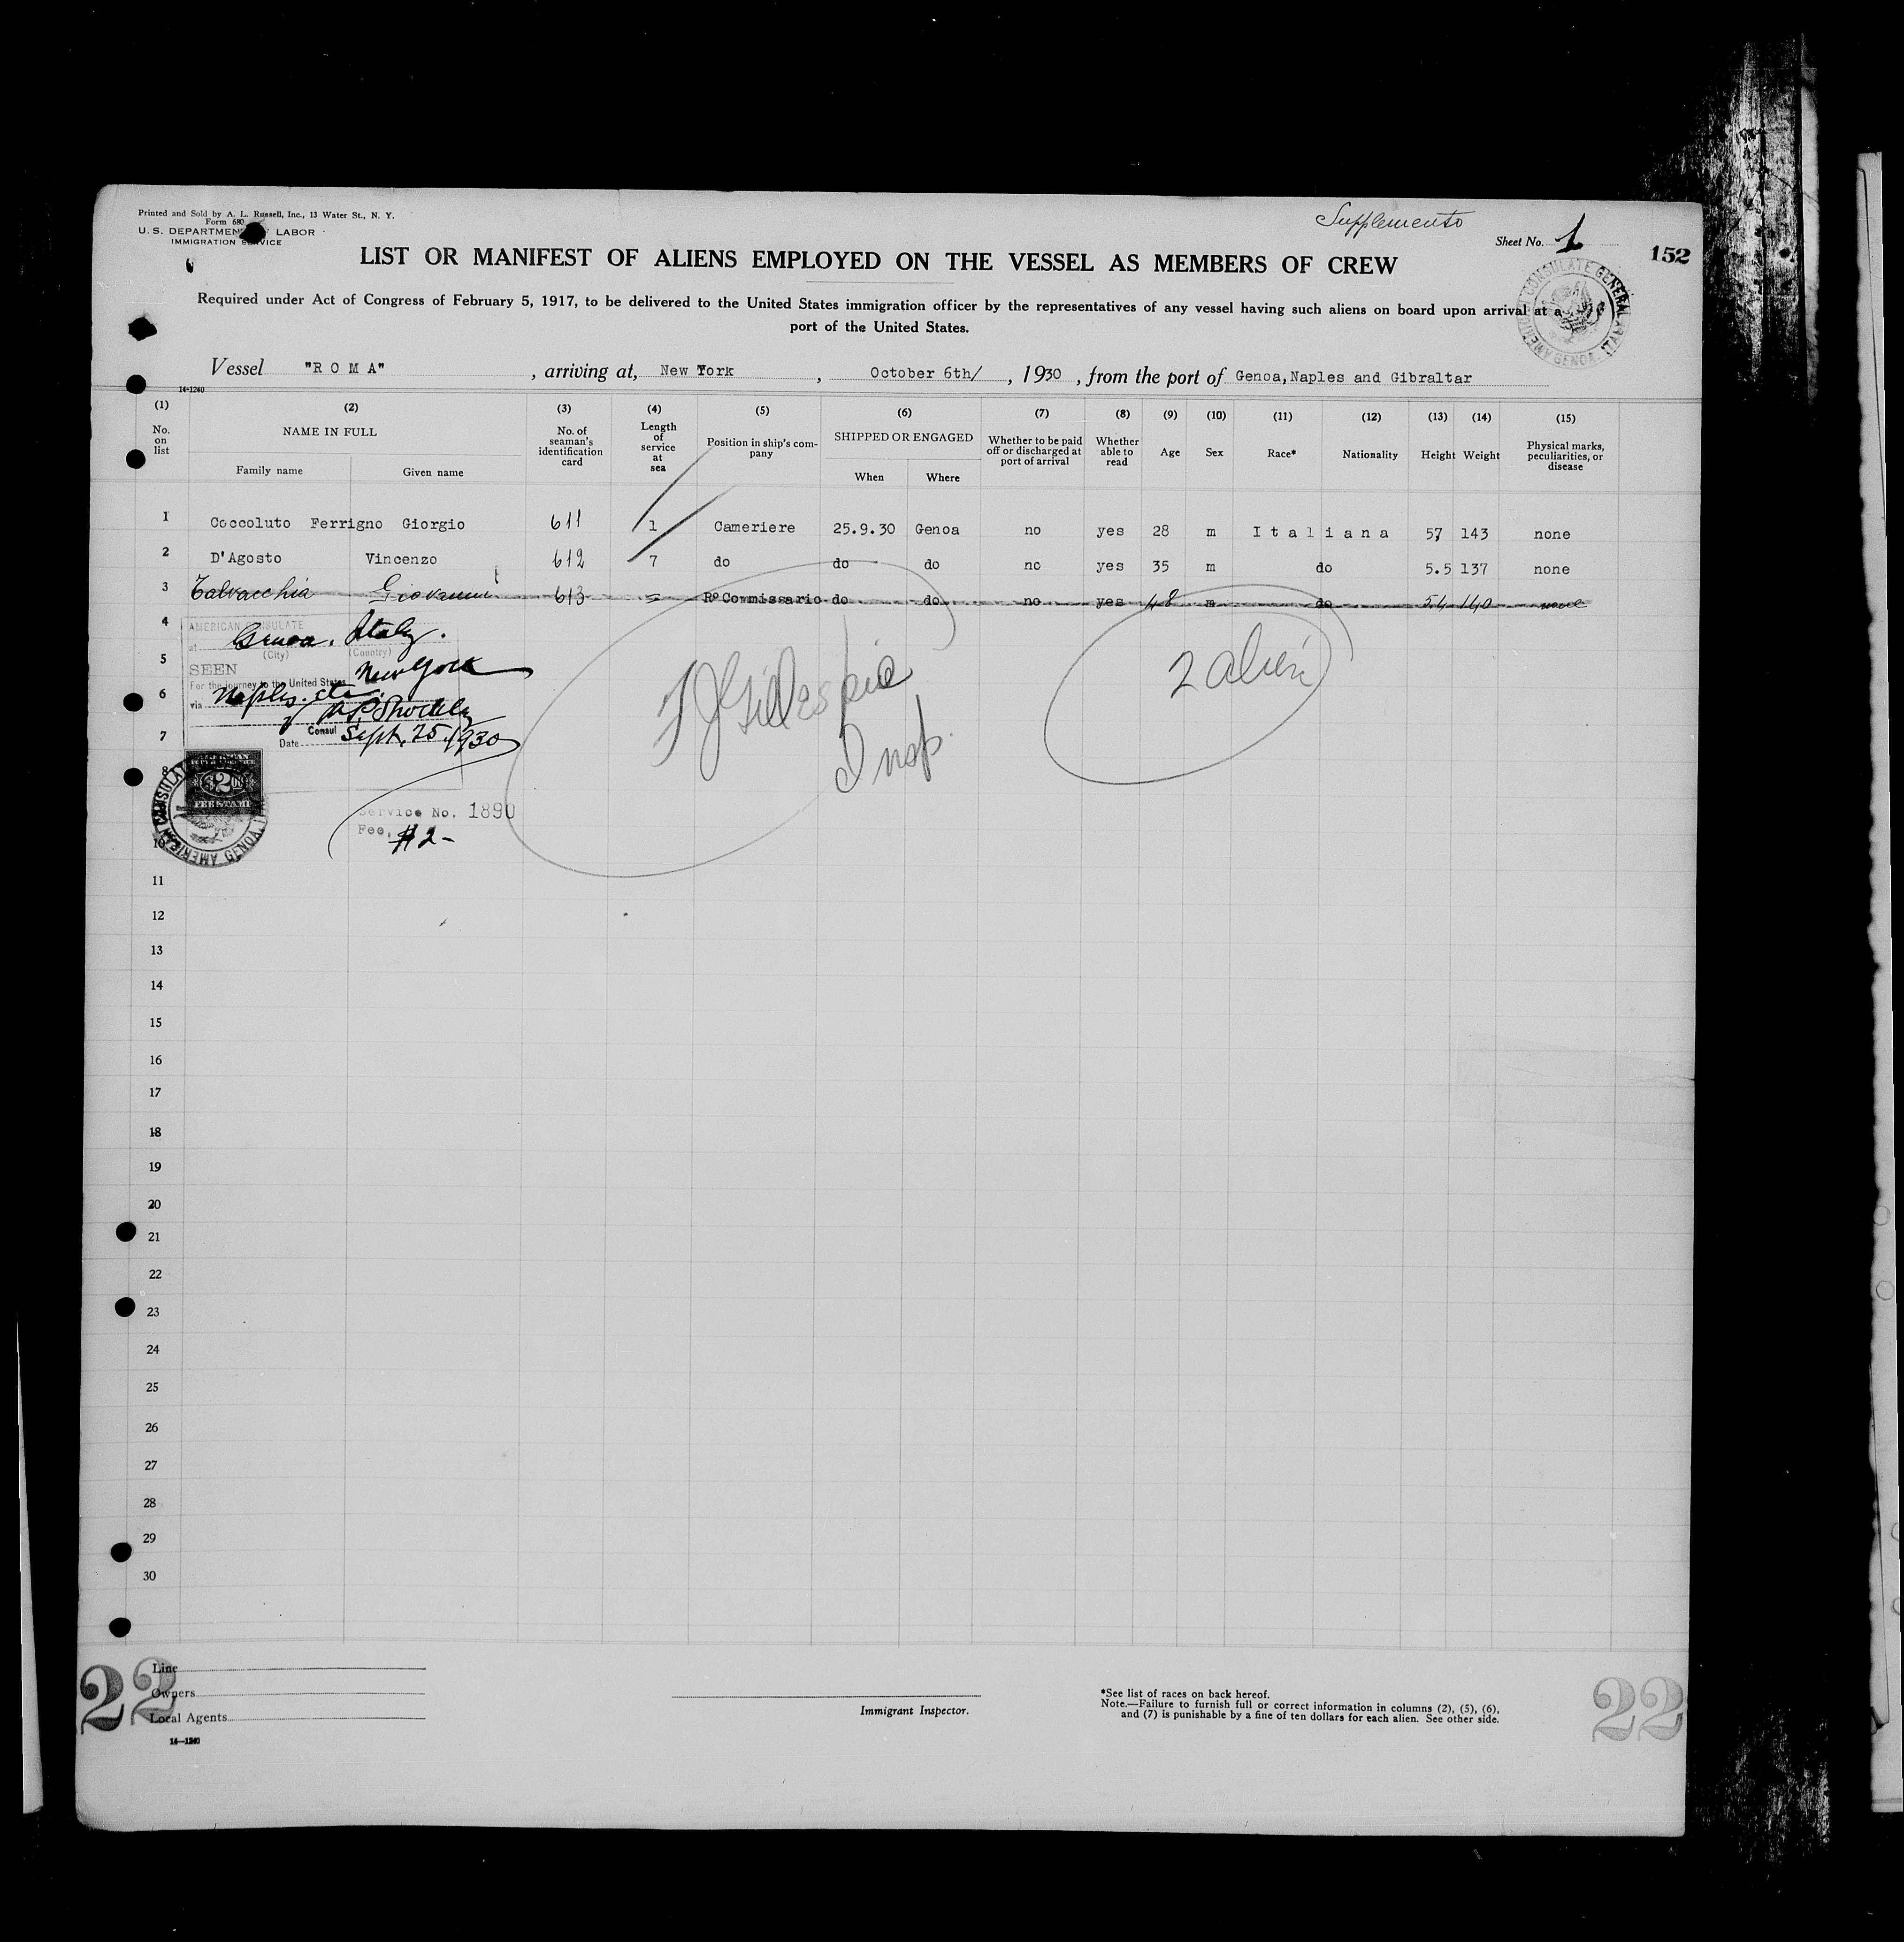 Printed and Sold by A. L. Russell, Inc., 13 Water St., N. Y.
Form 680
U. S. DEPARTMENT LABOR
IMMIGRATION SERVICE
Supplemento
Sheet No. 1
152
LIST OR MANIFEST OF ALIENS EMPLOYED ON THE VESSEL AS MEMBERS OF CREW
Required under Act of Congress of February 5, 1917, to be delivered to the United States immigration officer by the representatives of any vessel having such aliens on board upon arrival at a
port of the United States.
AMERICAN CONSULATE GENERAL GENOA, ITALY
Vessel "ROMA", arriving at, New York, October 6th/, 1930, from the port of Genoa, Naples and Gibraltar
14-1240
(1) (2) (3) (4) (5) (6) (7) (8) (9) (10) (11) (12) (13) (14) (15)
No. on list NAME IN FULL No. of seaman's identification card Length of service at sea Position in ship's company SHIPPED OR ENGAGED Whether to be paid off or discharged at port of arrival Whether able to read Age Sex Race* Nationality Height Weight Physical marks, peculiarities, or disease
Family name Given name When Where
1 Coccoluto Ferrigno Giorgio 611 1 Cameriere 25.9.30 Genoa no yes 28 m Italiana 57 143 none
2 D'Agosto Vincenzo 612 7 do do do no yes 35 m do 5.5 137 none
3 Talvacchia Giovanni 613 Ro Commissario do do no yes 48 m do 5.4 140 none
4 AMERICAN CONSULATE
at Genoa, Italy.
(City) (Country)
5 SEEN
For the journey to the United States New York
6 via Naples. etc.
Consul
7 Date Sept. 25, 1930
F J Gillespie
Insp.
2 alien
8
$2.00
FEE STAMP
AMERICAN CONSULATE GENOA, ITALY
Service No. 1890
Fee, $2-
10
11
12
13
14
15
16
17
18
19
20
21
22
23
24
25
26
27
28
29
30
22
Line
Owners
Local Agents
14—1240
Immigrant Inspector.
*See list of races on back hereof.
Note.—Failure to furnish full or correct information in columns (2), (5), (6),
and (7) is punishable by a fine of ten dollars for each alien. See other side.
22